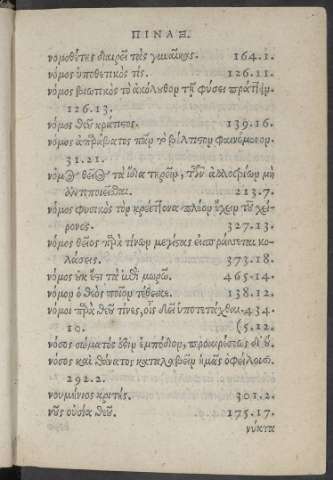 ΠΙΝΑΞ.
νομοθέτης διαιρεῖ τὰς γυναῖκας. 164.1.
νόμος ὑποθετικὸς τίς. 126.11.
νόμος βιωτικὸς τὸ ἀκόλουθον τῇ φύσει πράττειν.
126.13.
νόμος θεοῦ κράτιστος. 139.16.
νόμος ἀπαράβατος πᾶν τὸ βέλτιον φαινόμενον.
31.21.
νόμος θεῖος τὰ ἴδια τηρεῖν, τῶν ἀλλοτρίων μὴ
ἀντιποιεῖσθαι. 213.7.
νόμος φυσικὸς τὸν κρείττονα πλέον ἔχειν τοῦ χεί-
ρονος. 327.13.
νόμος θεῖος παρὰ τίνων μεγίστας εἰσπράττεται κο-
λάσεις. 373.18.
νόμος οὐκ ἔστι τὰ ἐπὶ μωρῷ. 465.14.
νόμον ὁ θεὸς ποῖον τέθεικε. 138.12.
νόμοι παρὰ θεοῦ τίνες, οἷς δεῖ ὑποτετάχθαι. 434.
10. (5.12.
νόσος σώματός ἐστιν ἐμπόδιον, προαιρέσεως δὲ οὔ.
νόσος καὶ θάνατος καταλαβεῖν ἡμᾶς ὀφείλουσι.
292.2.
νουμήνιος κριτής. 301.2.
νοῦς οὐσία θεοῦ. 175.17.
νύκτα